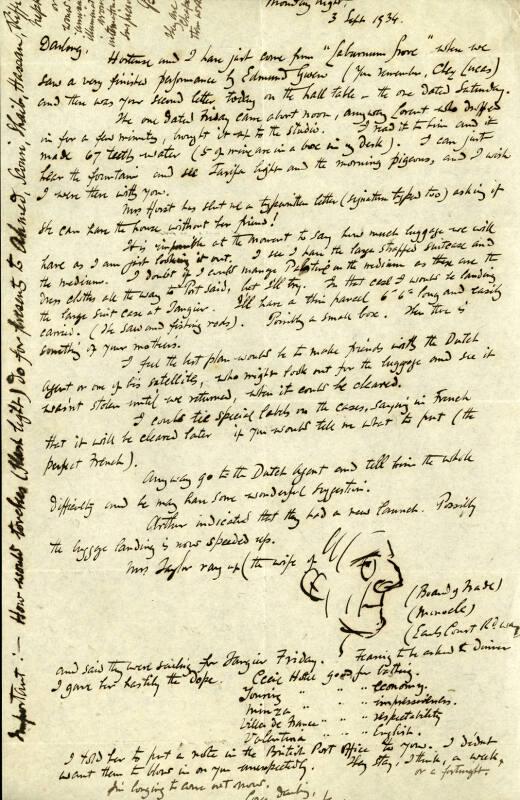 Monday night.
3 Sept. 1934.
Darling,
Hortense and I have just come from "Laburnum Grove" when we
saw a very finished performance by Edmund Gwenn (You remember, Clay Lucas)
and there was your second letter, today on the hall table – the one dated Saturday.
The one dated Friday came about noon, anyway Lorent who dropped
in for a few minutes, brought it up to the studio. I read it to him and it
made 67 teeth water (5 of mine are in a box in my desk). I can just
hear the fountain and see Tarifa light and the morning pigeons, and I wish
I were there with you.
Mrs Horst has sent me a typewritten letter (signature typed too) asking if
she can have the house without her friend!
It is impossible at the moment to say how much luggage we will
have as I am just looking it out. I see I have the large strapped suitcase and
the medium. I doubt if I could manage in the medium as they are the
dress clothes all the way to Port Said, but I'll try. In that case I would be landing
the large suit case at Tangier. I'll have a thin parcel 6' 6" long and easily
carried. (The saw and fishing rods). Possibly a small box. Then there is
something of your mothers.
I feel the best plan would be to make friends with the Dutch
Agent or one of his satellites, who might look out for the luggage and see it
wasn't stolen until we returned, when it could be cleared.
I could tie special labels on the cases, saying in French
that it will be cleared later if you would tell me what to put (the
perfect French).
Anyway go to the Dutch Agent and tell him the whole
difficulty and he may have some wonderful suggestion.
Arthur indicated that they had a new launch. Possibly
the luggage landing is now speeded up.
Mrs Taylor rang up (the wife of
(Board of Trade)
(Monocle)
(Earls Court Rd. way)
and said they were sailing for Tangier Friday. Fearing to be asked to dinner
I gave her hastily the dope. Cecil Hotel good for bathing.
Touring " " economy.
Minza " " impressiveness.
Villa de France " " respectability
Valentina " " English.
I told her to put a note in the British Post Office to you. I didnt
want them to blow in on you unexpectedly. They stay, I think, a week,
or a fortnight.
I'm longing to come out now.
Important :– How would torches (flash light) do for presents to Ahmed,